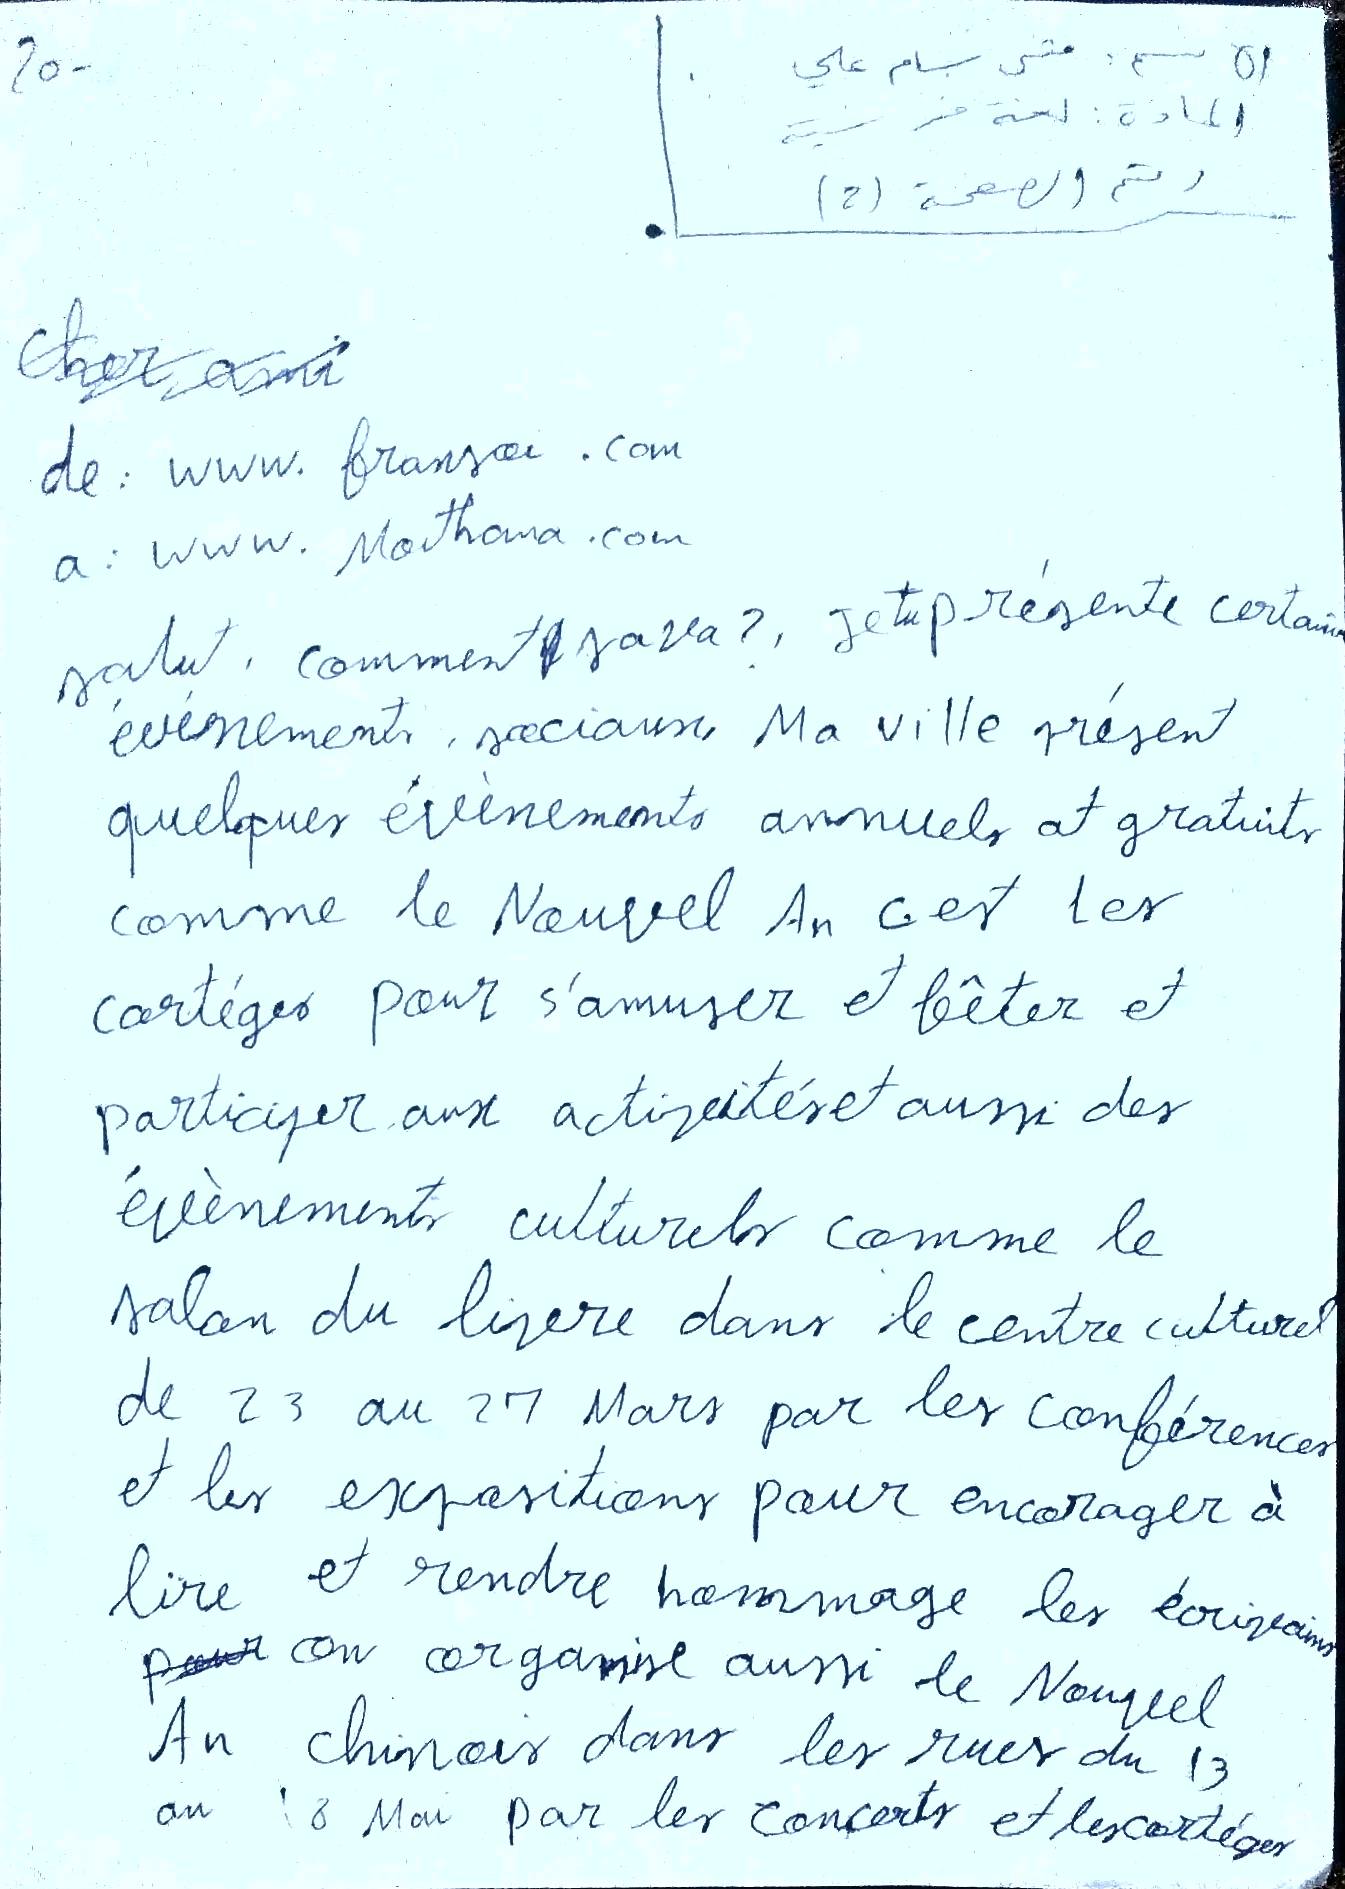 20-
الاسم: مثنى بسام علي
المادة: لغة فرنسية
رقم الصفحة (2)
cher ami
de: www. fransoi .com
a: www. Mothana .com
salut, comment sava?, Je tu présente certains
événements, sociaux, Ma ville présent
quelques évènements annuels et gratuits
comme le Nouvel An c.est les
cortéges pour s'amuser et fêter et
participer aux activités et aussi des
évènements culturels comme le
salon du livere dans le centre culturel
de 23 au 27 Mars par les conférences
et les expositions pour encorager à
lire et rendre hommage les écrivains
pour on organise aussi le Nouvel
An chinois dans les rues du 13
au 18 Mai par les concerts et les cortéges